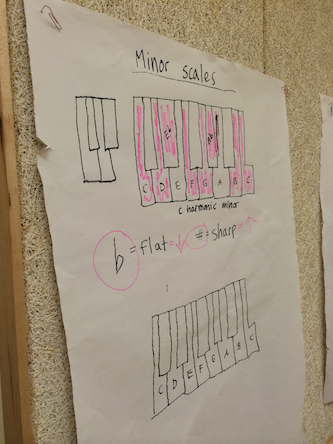 Minor scales
Eb Ab
C D E F G A B C
c harmonic minor
b = flat = ↓ # = sharp = ↑
C D E F G A B C